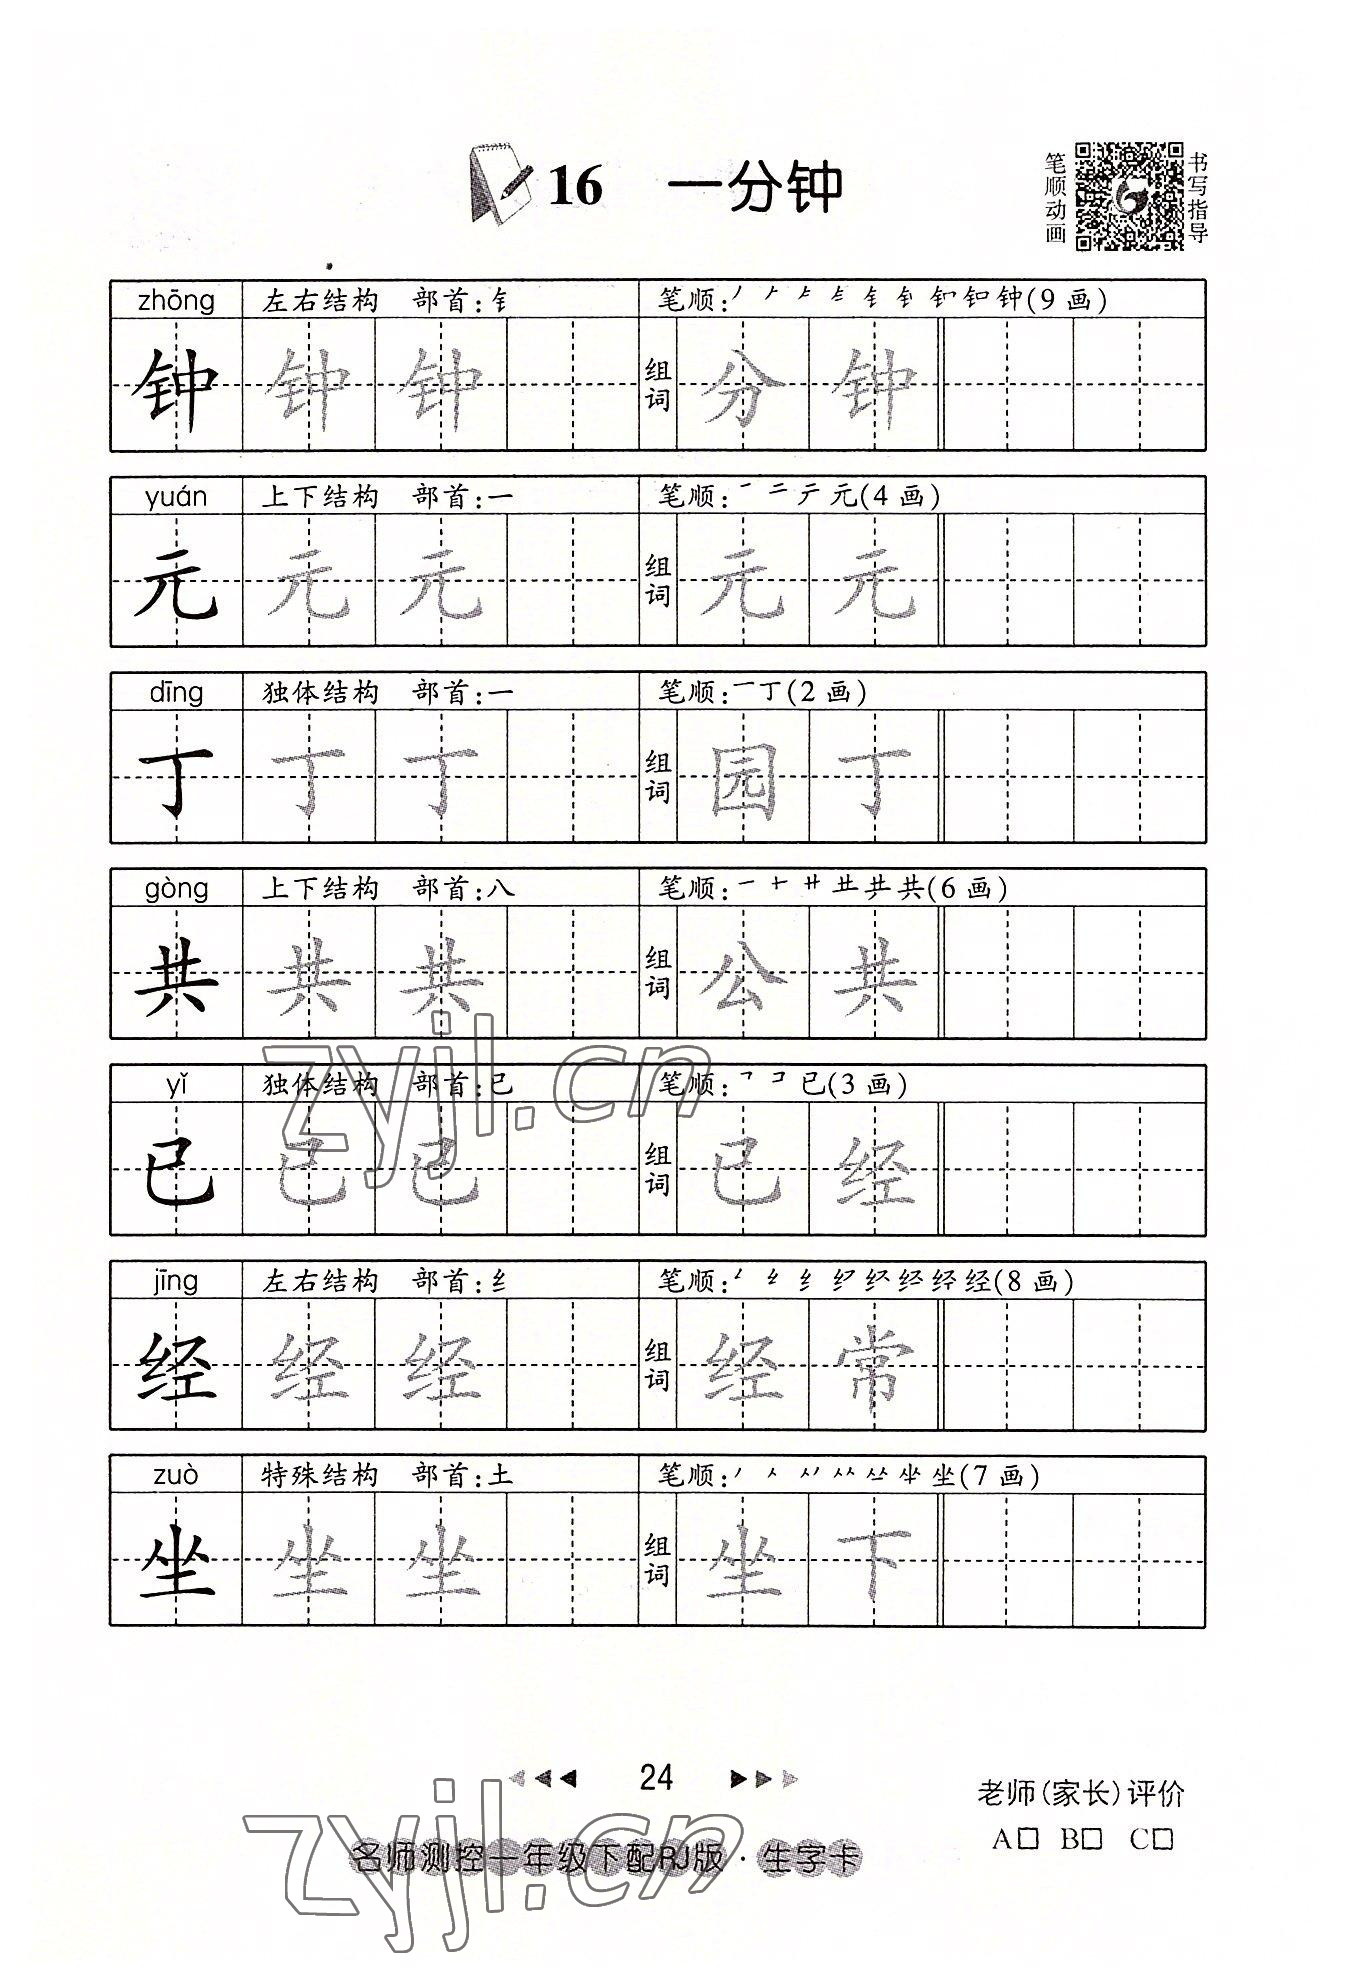 16 一分钟
笔顺动画
书写指导
zhōng 左右结构 部首:钅 笔顺: 钟(9 画)
钟 钟 钟 组词 分 钟
yuán 上下结构 部首:一 笔顺:一 二 元(4 画)
元 元 元 组词 元 元
dīng 独体结构 部首:一 笔顺:一丁(2 画)
丁 丁 丁 组词 园 丁
gòng 上下结构 部首:八 笔顺:一 十 廾 共(6 画)
共 共 共 组词 公 共
yǐ 独体结构 部首:已 笔顺: 已(3 画)
已 已 已 组词 已 经
jīng 左右结构 部首:纟 笔顺: 纟 经(8 画)
经 经 经 组词 经 常
zuò 特殊结构 部首:土 笔顺: 坐(7 画)
坐 坐 坐 组词 坐 下
zyjl.cn
24
老师(家长)评价
A□ B□ C□
名师测控一年级下配RJ版·生字卡
zyjl.cn